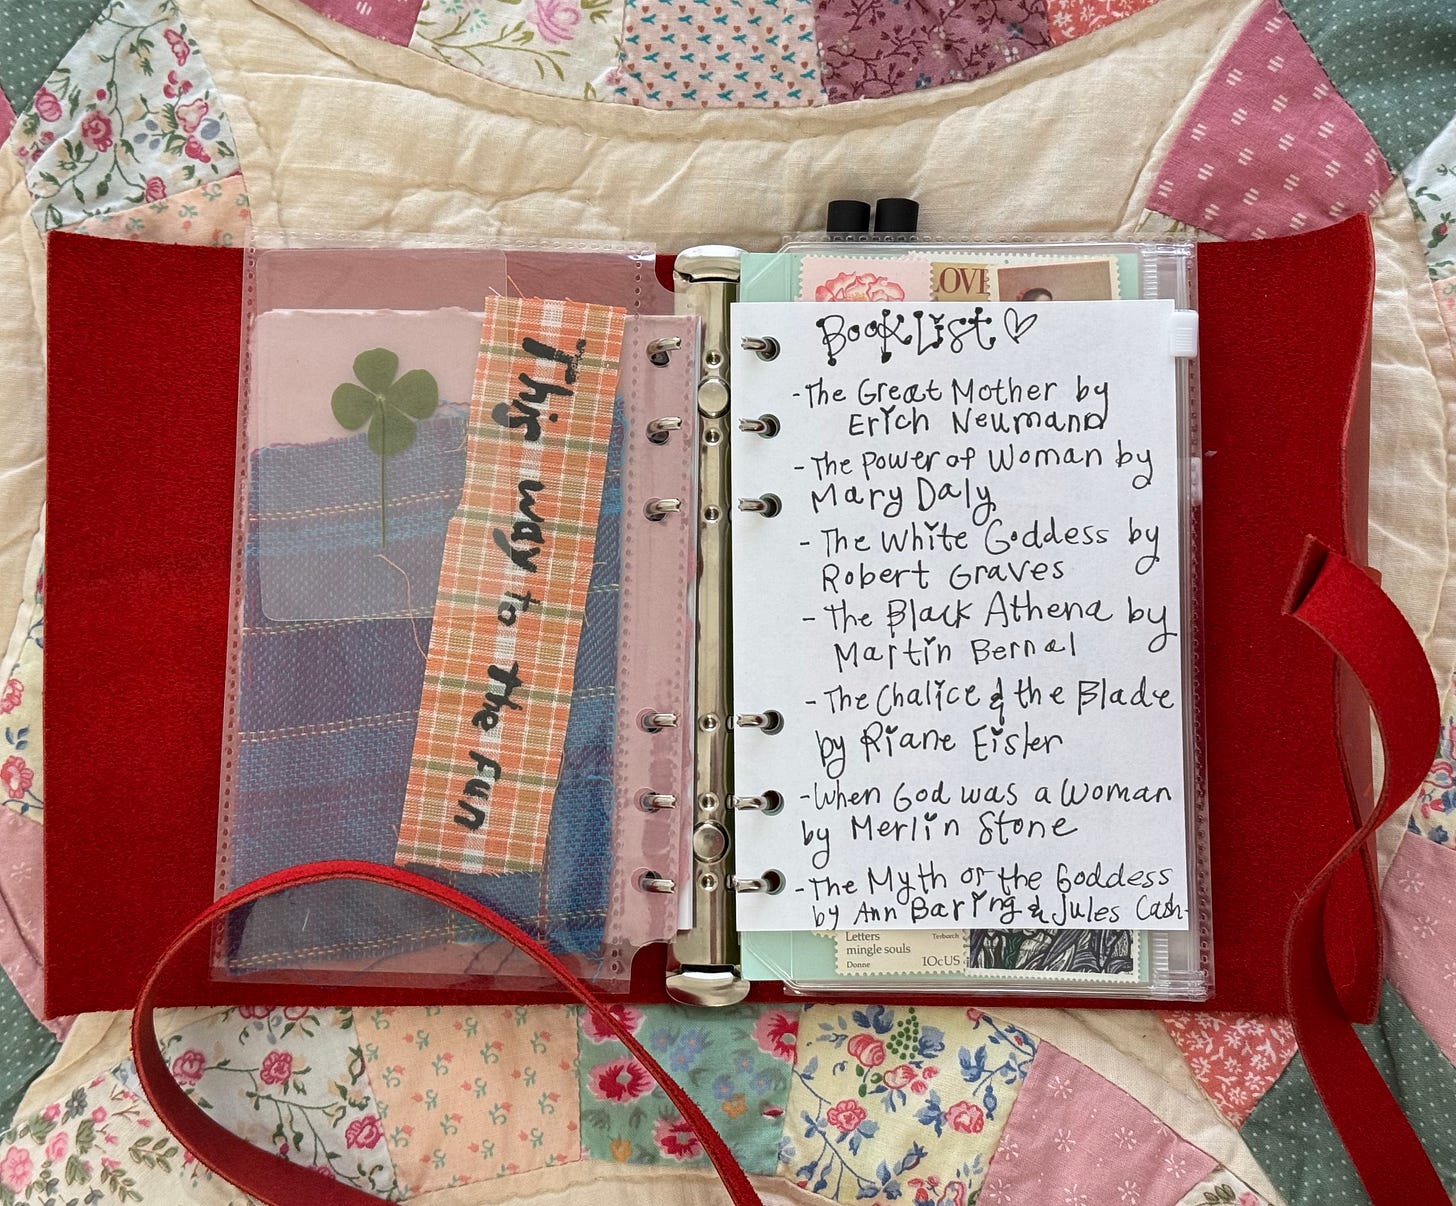 This way to the fun
OVE
Book List ♡
-The Great Mother by
Erich Neumann
-The Power of Woman by
Mary Daly
- The White Goddess by
Robert Graves
- The Black Athena by
Martin Bernal
- The Chalice & the Blade
by Riane Eisler
-When God was a Woman
by Merlin Stone
-The Myth of the Goddess
by Ann Baring & Jules Cash-
Letters
mingle souls
Donne
Terborch
10cUS